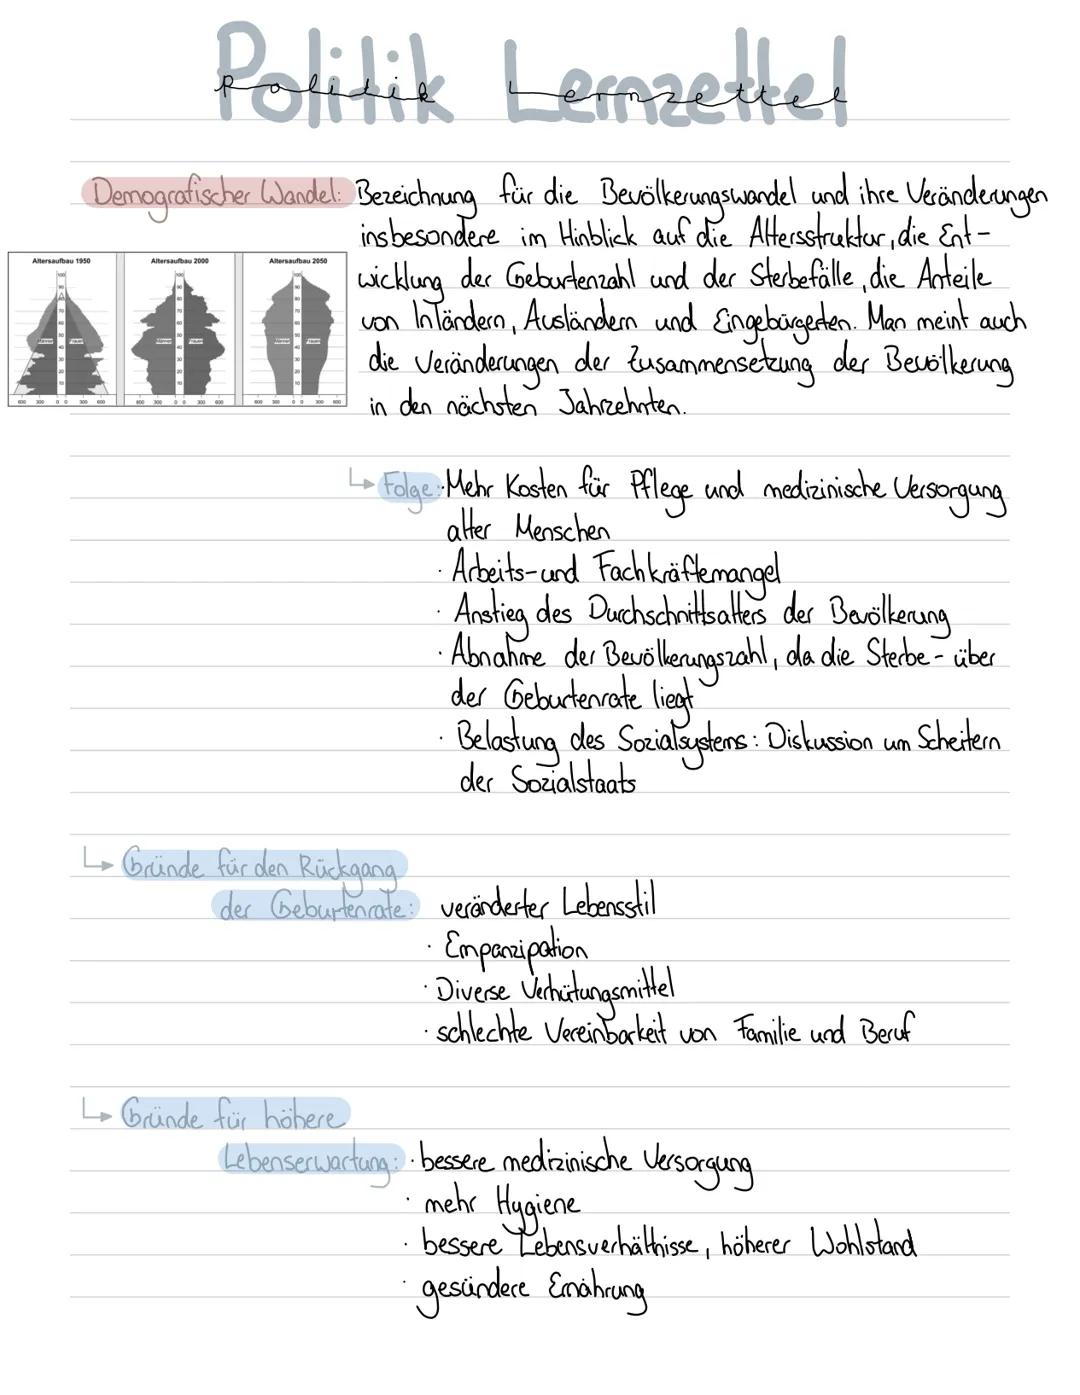 Politik Lernzettel
Politik Lernzettel
Demografischer Wandel: Bezeichnung für die Bevölkerungswandel und ihre Veränderungen
insbesondere im Hinblick auf die Altersstruktur, die Ent-
wicklung der Geburtenzahl und der Sterbefälle, die Anteile
von Inländern, Ausländern und Eingebürgerten. Man meint auch
die Veränderungen der Zusammensetzung der Bevölkerung
in den nächsten Jahrzehnten.
Altersaufbau 1950
Altersaufbau 2000
Altersaufbau 2050
Männer Frauen
Männer Frauen
Männer Frauen
600 300 0 0 300 600
600 300 0 0 300 600
600 300 0 0 300 600
↳ Folge: Mehr Kosten für Pflege und medizinische Versorgung
alter Menschen
· Arbeits- und Fachkräftemangel
· Anstieg des Durchschnittsalters der Bevölkerung
· Abnahme der Bevölkerungszahl, da die Sterbe- über
der Geburtenrate liegt
· Belastung des Sozialsystems: Diskussion um Scheitern
der Sozialstaats
↳ Gründe für den Rückgang
der Geburtenrate: veränderter Lebensstil
· Empanzipation
· Diverse Verhütungsmittel
· schlechte Vereinbarkeit von Familie und Beruf
↳ Gründe für höhere
Lebenserwartung: · bessere medizinische Versorgung
· mehr Hygiene
· bessere Lebensverhältnisse, höherer Wohlstand
· gesündere Ernährung